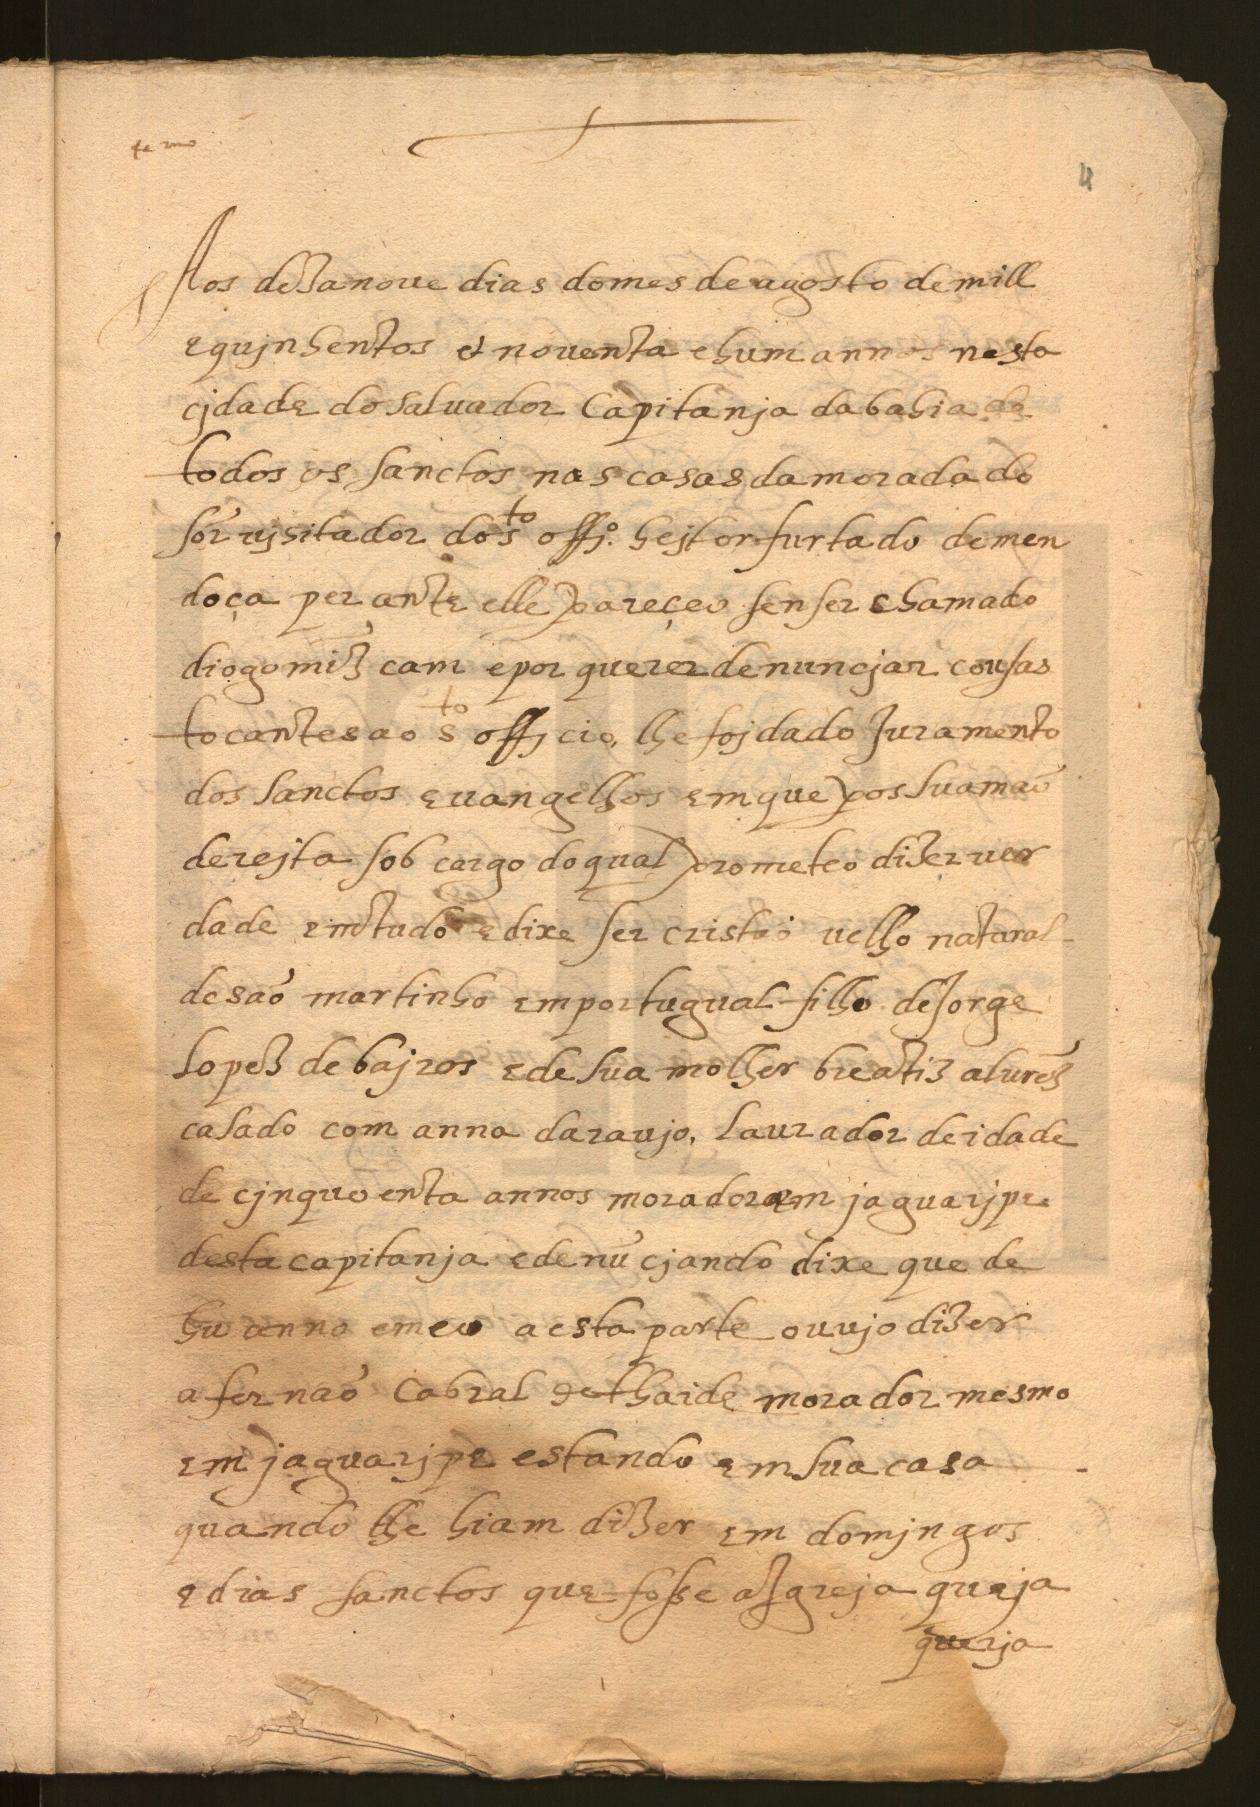 te mo
4
Aos dezanove dias do mes de agosto de mill
e quinhentos et noventa e hum annos nesta
cjdade do salvador Capitanja da bahia de
todos os sanctos nas casas da morada do
sor vjsitador do sto offjo. hejtor furtado de men
doça perante elle pareçeo sen ser chamado
diogo miz cam e por querer denuncjar cousas
tocantes ao sto offjcio, lhe foj dado Juramento
dos sanctos evangelhos em que pos sua maõ
derejta sob cargo do qual prometeo dizer ver
dade em tudo e dixe ser cristaõ velho natural
de saõ martinho em portugual filho de Jorge
lopez de bajros e de sua molher breatiz alurez
casado com anna daraujo, laurador de idade
de cjnquoenta annos morador em jaguarjpe
desta capitanja e denũcjando dixe que de
hũ anno e meo a esta parte ouvjo dizer
a fernaõ Cabral de thaide morador mesmo
em jaguarjpe estando em sua casa
quando lhe hiam dizer em domjngos
e dias sanctos que fosse a Igreja que ja
queria